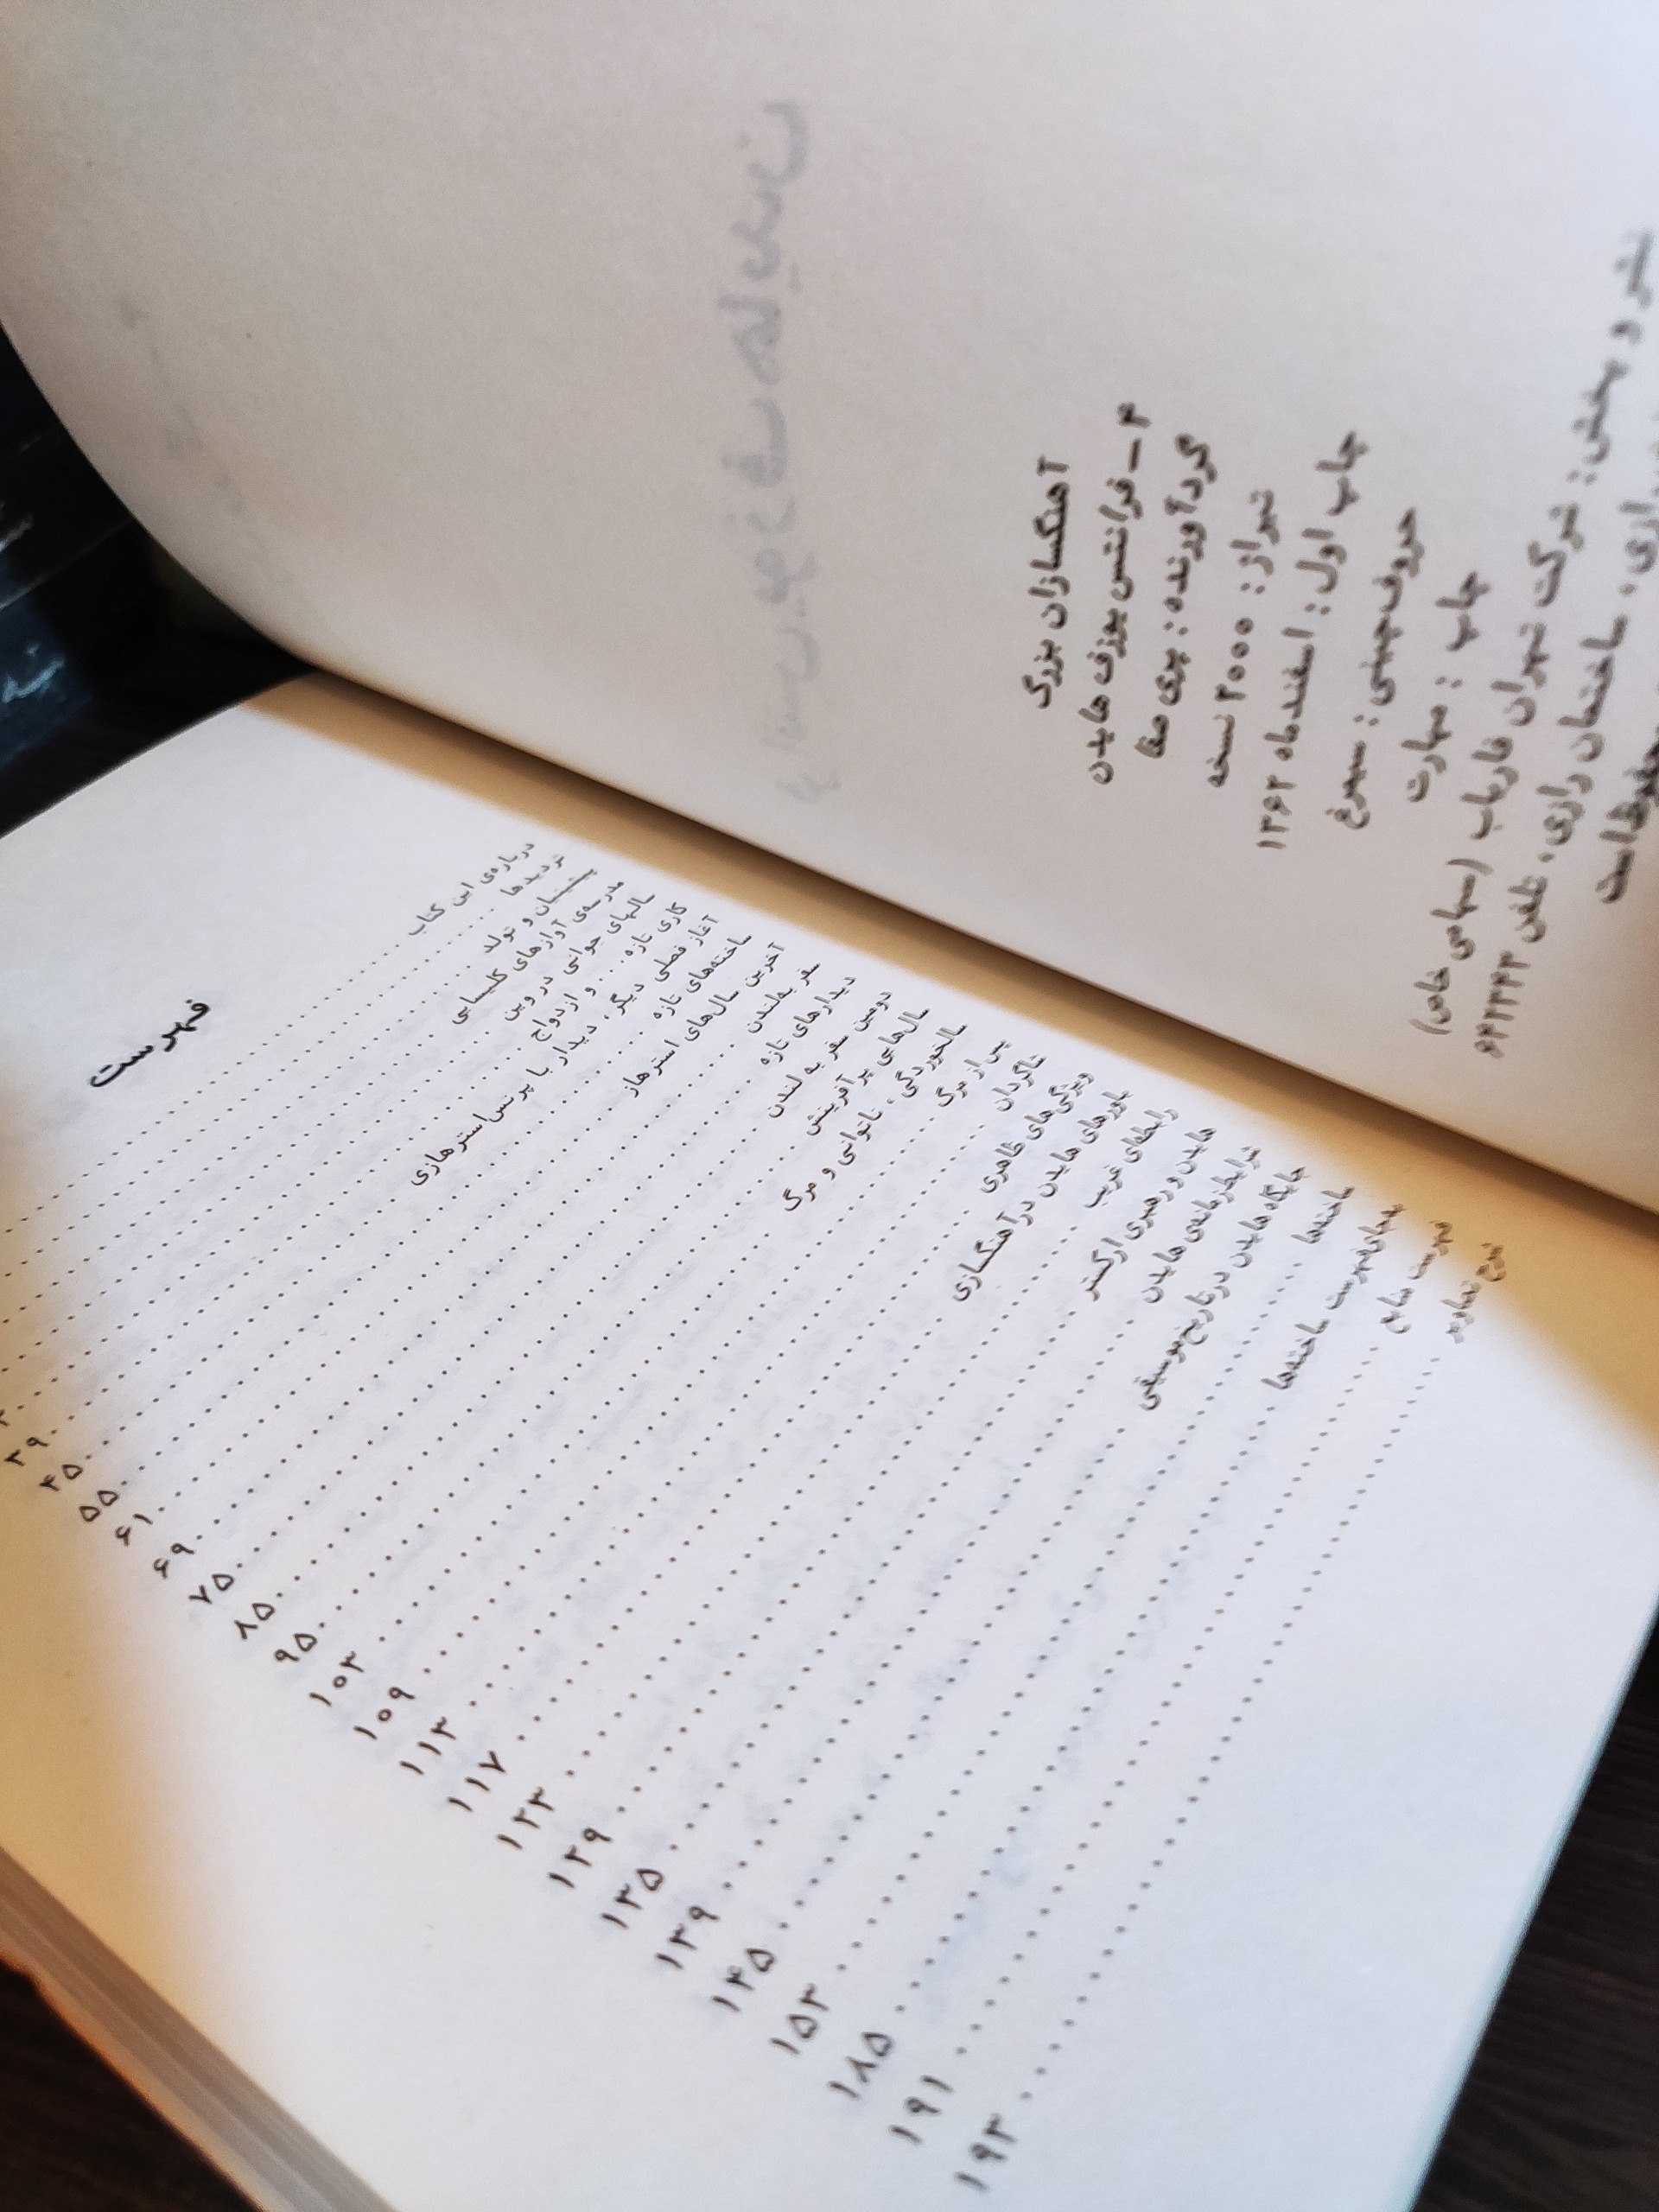 آهنگسازان بزرگ
۴ – فرانتس یوزف هایدن
گردآورنده : پری صفا
تیراژ : ۲۰۰۰ نسخه
چاپ اول : اسفندماه ۱۳۶۲
حروفچینی : سیمرغ
چاپ : مهارت
نشر و پخش : شرکت تهران فاریاب (سهامی خاص)
ساختمان رازی، تلفن
فهرست
درباره‌ی این کتاب
تردیدها
پیشینیان و تولد
مدرسه‌ی آوازهای کلیسایی
سالهای جوانی در وین
کاری تازه . . . و ازدواج
آغاز فصلی دیگر، دیدار با پرنس استرهازی
ساخته‌های تازه
آخرین سال‌های استرهاز
سفر به لندن
دیدارهای تازه
دومین سفر به لندن
سال‌هایی پر آفرینش
سالخوردگی، ناتوانی و مرگ
پس از مرگ
شاگردان
ویژگی‌های ظاهری
باورهای هایدن در آهنگسازی
رابطه‌ای غریب
هایدن و رهبری ارکستر
شرایط زمانه‌ی هایدن
جایگاه هایدن در تاریخ موسیقی
ساخته‌ها
فهرست ساخته‌ها
فهرست منابع
شرح تصاویر
۳۹
۴۵
۵۵
۶۱
۶۹
۷۵
۸۵
۹۵
۱۰۳
۱۰۹
۱۱۳
۱۱۷
۱۲۳
۱۲۹
۱۳۵
۱۳۹
۱۴۵
۱۵۳
۱۸۵
۱۹۱
۱۹۳